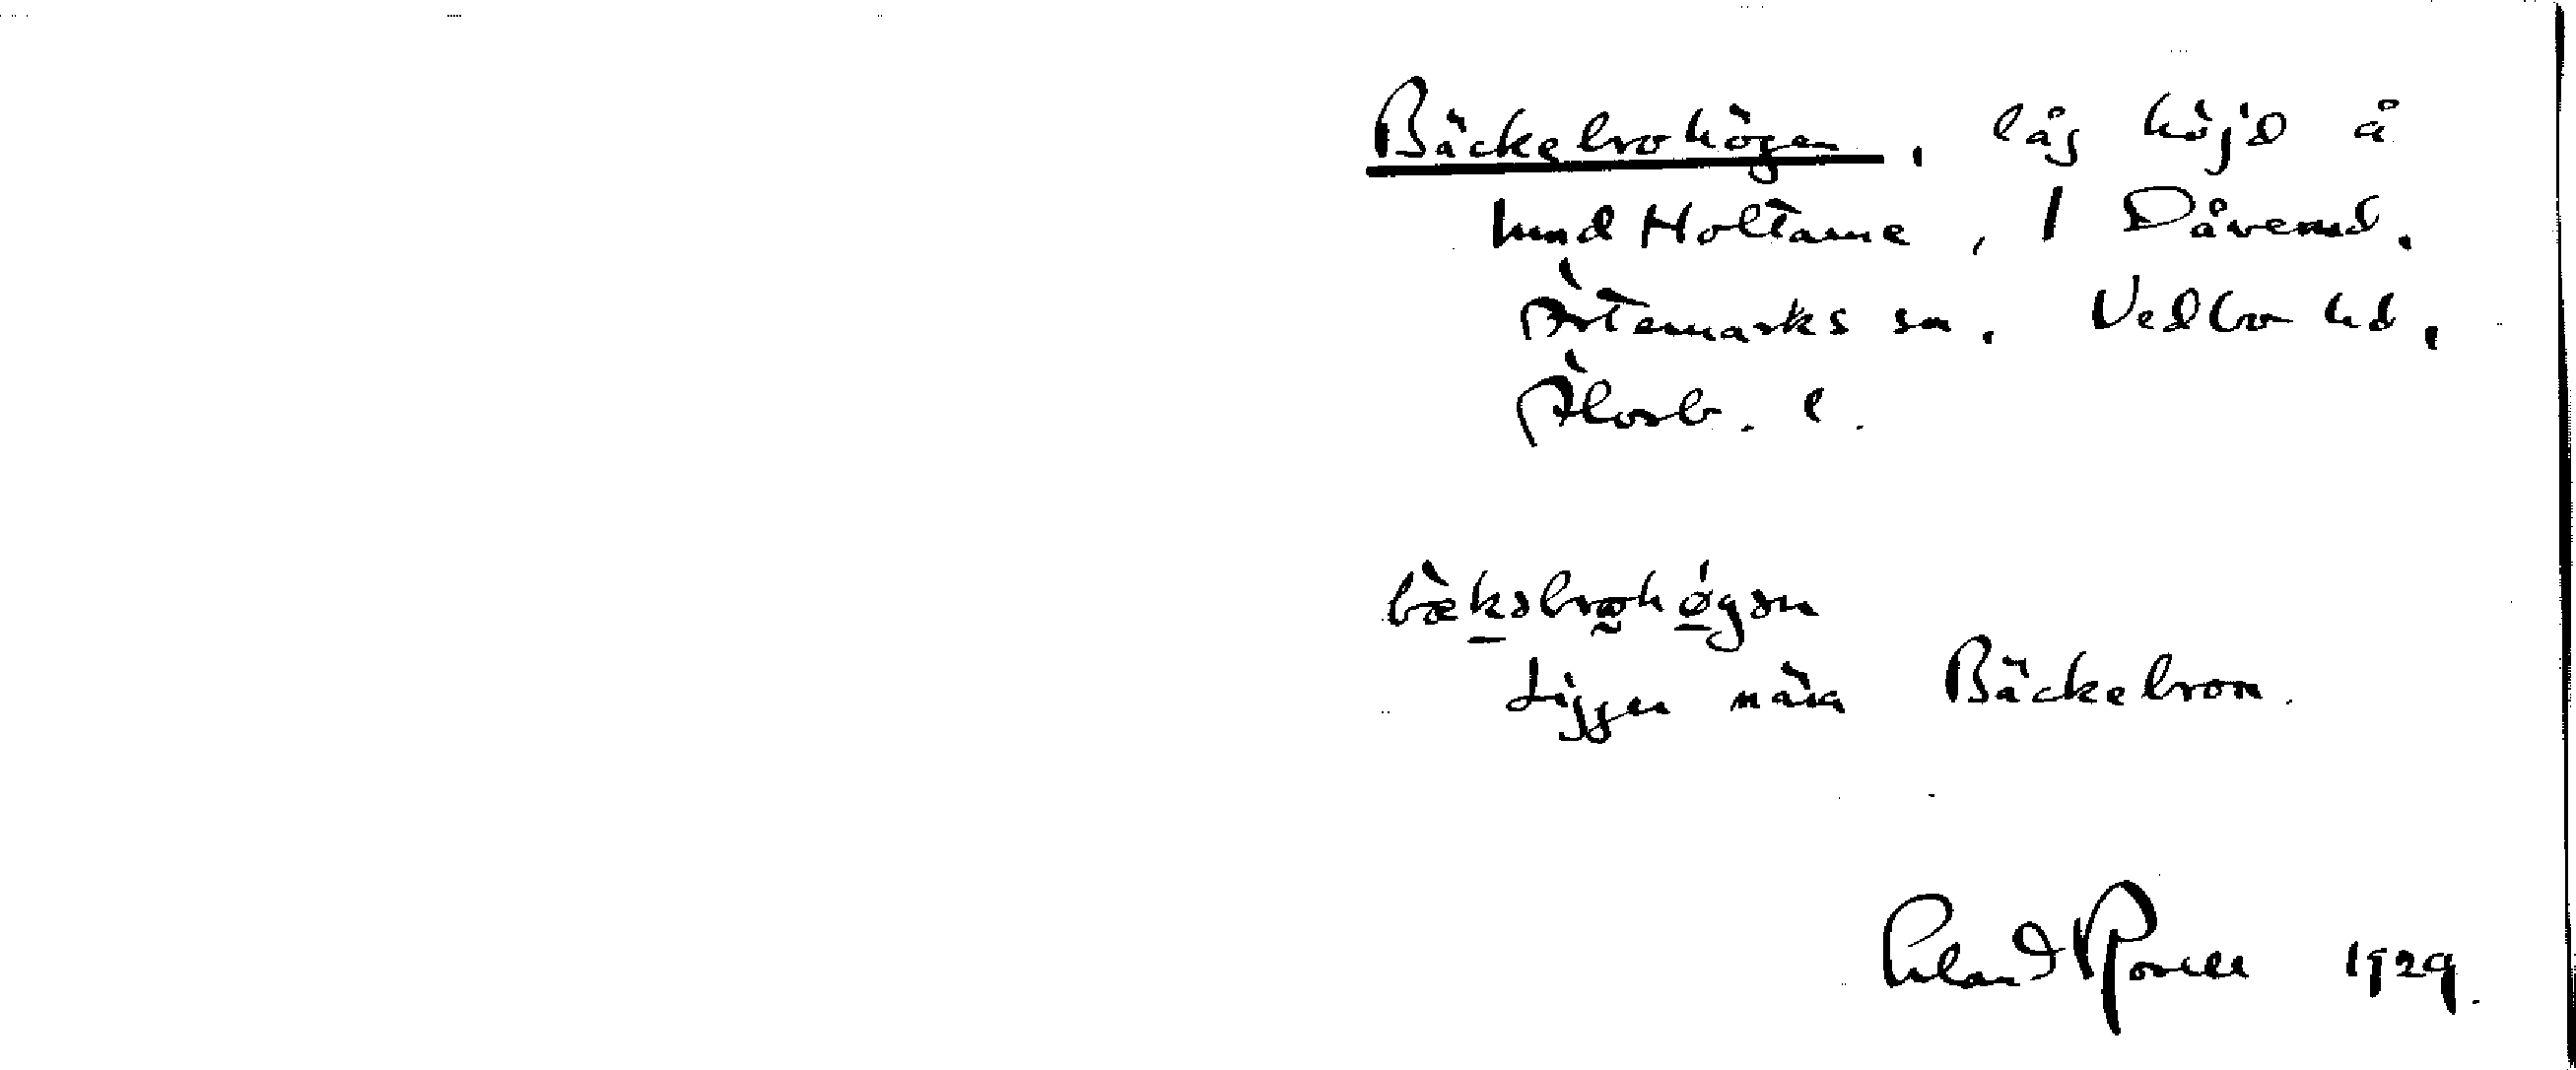 Bäckebrohögen, låg höjd å
hmd Holtane, 1 Dåverud.
Ärtemarks sn. Vedbo hd.
Älvsb. l.
bækəbrohøgən
Ligger nära Bäckebron.
Erland Rosell 1929.